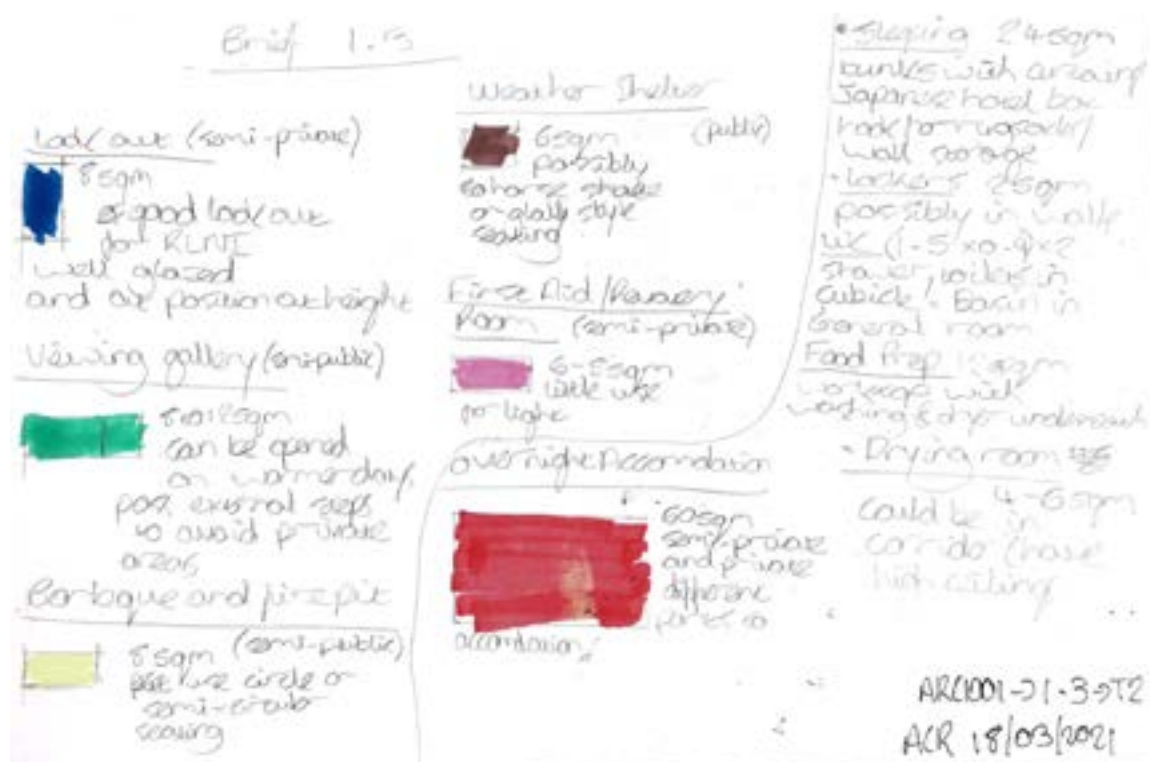 Brief 1.3
Look out (semi-private)
8 sqm
good look out
for RLNI
well glazed
and air position at height
Viewing gallery (semi-public)
8 or 12 sqm
can be opened
on warmer days,
poss. external steps
to avoid private
areas
Barbaque and firepit
(semi-public)
8 sqm
use circle or
semi-circular
seating
Weather Shelter
(public)
6 sqm
possibly
shape
style
seating
First Aid / Recovery
Room (semi-private)
6-8 sqm
little use
no light
overnight Accomodation
60 sqm
semi-private
and private
different
accomdation
• Sleeping 24 sqm
bunks with
Japanese hotel box
wall storage
• Lockers 2 sqm
possibly in walls
WC (1.5 x 0.9) x 2
shower, toilets in
cubicle. Basin in
General room
Food Prep
with
washing & dryer underneath
• Drying room
4-6 sqm
could be in
corrido (have
high ceiling
ACR 18/03/2021